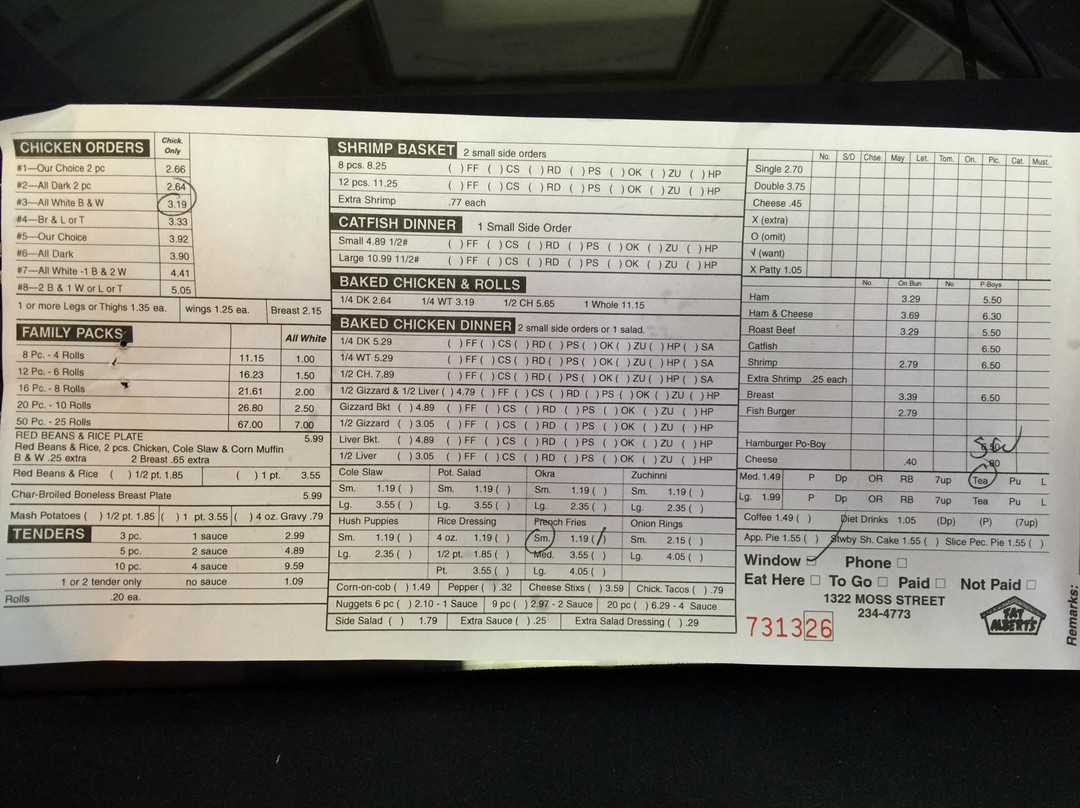 CHICKEN ORDERS Chick. Only
#1—Our Choice 2 pc 2.66
#2—All Dark 2 pc 2.64
#3—All White B & W 3.19
#4—Br & L or T 3.33
#5—Our Choice 3.92
#6—All Dark 3.90
#7—All White -1 B & 2 W 4.41
#8—2 B & 1 W or L or T 5.05
1 or more Legs or Thighs 1.35 ea. wings 1.25 ea. Breast 2.15
FAMILY PACKS All White
8 Pc. - 4 Rolls 11.15 1.00
12 Pc. - 6 Rolls 16.23 1.50
16 Pc. - 8 Rolls 21.61 2.00
20 Pc. - 10 Rolls 26.80 2.50
50 Pc. - 25 Rolls 67.00 7.00
RED BEANS & RICE PLATE 5.99
Red Beans & Rice, 2 pcs. Chicken, Cole Slaw & Corn Muffin
B & W .25 extra 2 Breast .65 extra
Red Beans & Rice ( ) 1/2 pt. 1.85 ( ) 1 pt. 3.55
Char-Broiled Boneless Breast Plate 5.99
Mash Potatoes ( ) 1/2 pt. 1.85 ( ) 1 pt. 3.55 ( ) 4 oz. Gravy .79
TENDERS 3 pc. 1 sauce 2.99
5 pc. 2 sauce 4.89
10 pc. 4 sauce 9.59
1 or 2 tender only no sauce 1.09
Rolls .20 ea.
SHRIMP BASKET 2 small side orders
8 pcs. 8.25 ( ) FF ( ) CS ( ) RD ( ) PS ( ) OK ( ) ZU ( ) HP
12 pcs. 11.25 ( ) FF ( ) CS ( ) RD ( ) PS ( ) OK ( ) ZU ( ) HP
Extra Shrimp .77 each
CATFISH DINNER 1 Small Side Order
Small 4.89 1/2# ( ) FF ( ) CS ( ) RD ( ) PS ( ) OK ( ) ZU ( ) HP
Large 10.99 11/2# ( ) FF ( ) CS ( ) RD ( ) PS ( ) OK ( ) ZU ( ) HP
BAKED CHICKEN & ROLLS
1/4 DK 2.64 1/4 WT 3.19 1/2 CH 5.65 1 Whole 11.15
BAKED CHICKEN DINNER 2 small side orders or 1 salad.
1/4 DK 5.29 ( ) FF ( ) CS ( ) RD ( ) PS ( ) OK ( ) ZU ( ) HP ( ) SA
1/4 WT 5.29 ( ) FF ( ) CS ( ) RD ( ) PS ( ) OK ( ) ZU ( ) HP ( ) SA
1/2 CH. 7.89 ( ) FF ( ) CS ( ) RD ( ) PS ( ) OK ( ) ZU ( ) HP ( ) SA
1/2 Gizzard & 1/2 Liver ( ) 4.79 ( ) FF ( ) CS ( ) RD ( ) PS ( ) OK ( ) ZU ( ) HP
Gizzard Bkt ( ) 4.89 ( ) FF ( ) CS ( ) RD ( ) PS ( ) OK ( ) ZU ( ) HP
1/2 Gizzard ( ) 3.05 ( ) FF ( ) CS ( ) RD ( ) PS ( ) OK ( ) ZU ( ) HP
Liver Bkt. ( ) 4.89 ( ) FF ( ) CS ( ) RD ( ) PS ( ) OK ( ) ZU ( ) HP
1/2 Liver ( ) 3.05 ( ) FF ( ) CS ( ) RD ( ) PS ( ) OK ( ) ZU ( ) HP
Cole Slaw Pot. Salad Okra Zuchinni
Sm. 1.19 ( ) Sm. 1.19 ( ) Sm. 1.19 ( ) Sm. 1.19 ( )
Lg. 3.55 ( ) Lg. 3.55 ( ) Lg. 2.35 ( ) Lg. 2.35 ( )
Hush Puppies Rice Dressing French Fries Onion Rings
Sm. 1.19 ( ) 4 oz. 1.19 ( ) Sm. 1.19 ( ) Sm. 2.15 ( )
Lg. 2.35 ( ) 1/2 pt. 1.85 ( ) Med. 3.55 ( ) Lg. 4.05 ( )
Pt. 3.55 ( ) Lg. 4.05 ( )
Corn-on-cob ( ) 1.49 Pepper ( ) .32 Cheese Stixs ( ) 3.59 Chick. Tacos ( ) .79
Nuggets 6 pc ( ) 2.10 - 1 Sauce 9 pc ( ) 2.97 - 2 Sauce 20 pc ( ) 6.29 - 4 Sauce
Side Salad ( ) 1.79 Extra Sauce ( ) .25 Extra Salad Dressing ( ) .29
No. S/D Chse. May Let. Tom. On. Pic. Cat. Must.
Single 2.70
Double 3.75
Cheese .45
X (extra)
O (omit)
√ (want)
X Patty 1.05
No. On Bun No P-Boys
Ham 3.29 5.50
Ham & Cheese 3.69 6.30
Roast Beef 3.29 5.50
Catfish 6.50
Shrimp 2.79 6.50
Extra Shrimp .25 each
Breast 3.39 6.50
Fish Burger 2.79
Hamburger Po-Boy
Cheese .40 .80
Med. 1.49 P Dp OR RB 7up Tea Pu L
Lg. 1.99 P Dp OR RB 7up Tea Pu L
Coffee 1.49 ( ) Diet Drinks 1.05 (Dp) (P) (7up)
App. Pie 1.55 ( ) Stwby Sh. Cake 1.55 ( ) Slice Pec. Pie 1.55 ( )
Window Phone
Eat Here To Go Paid Not Paid
1322 MOSS STREET
234-4773
731326
FAT ALBERT'S
Remarks: